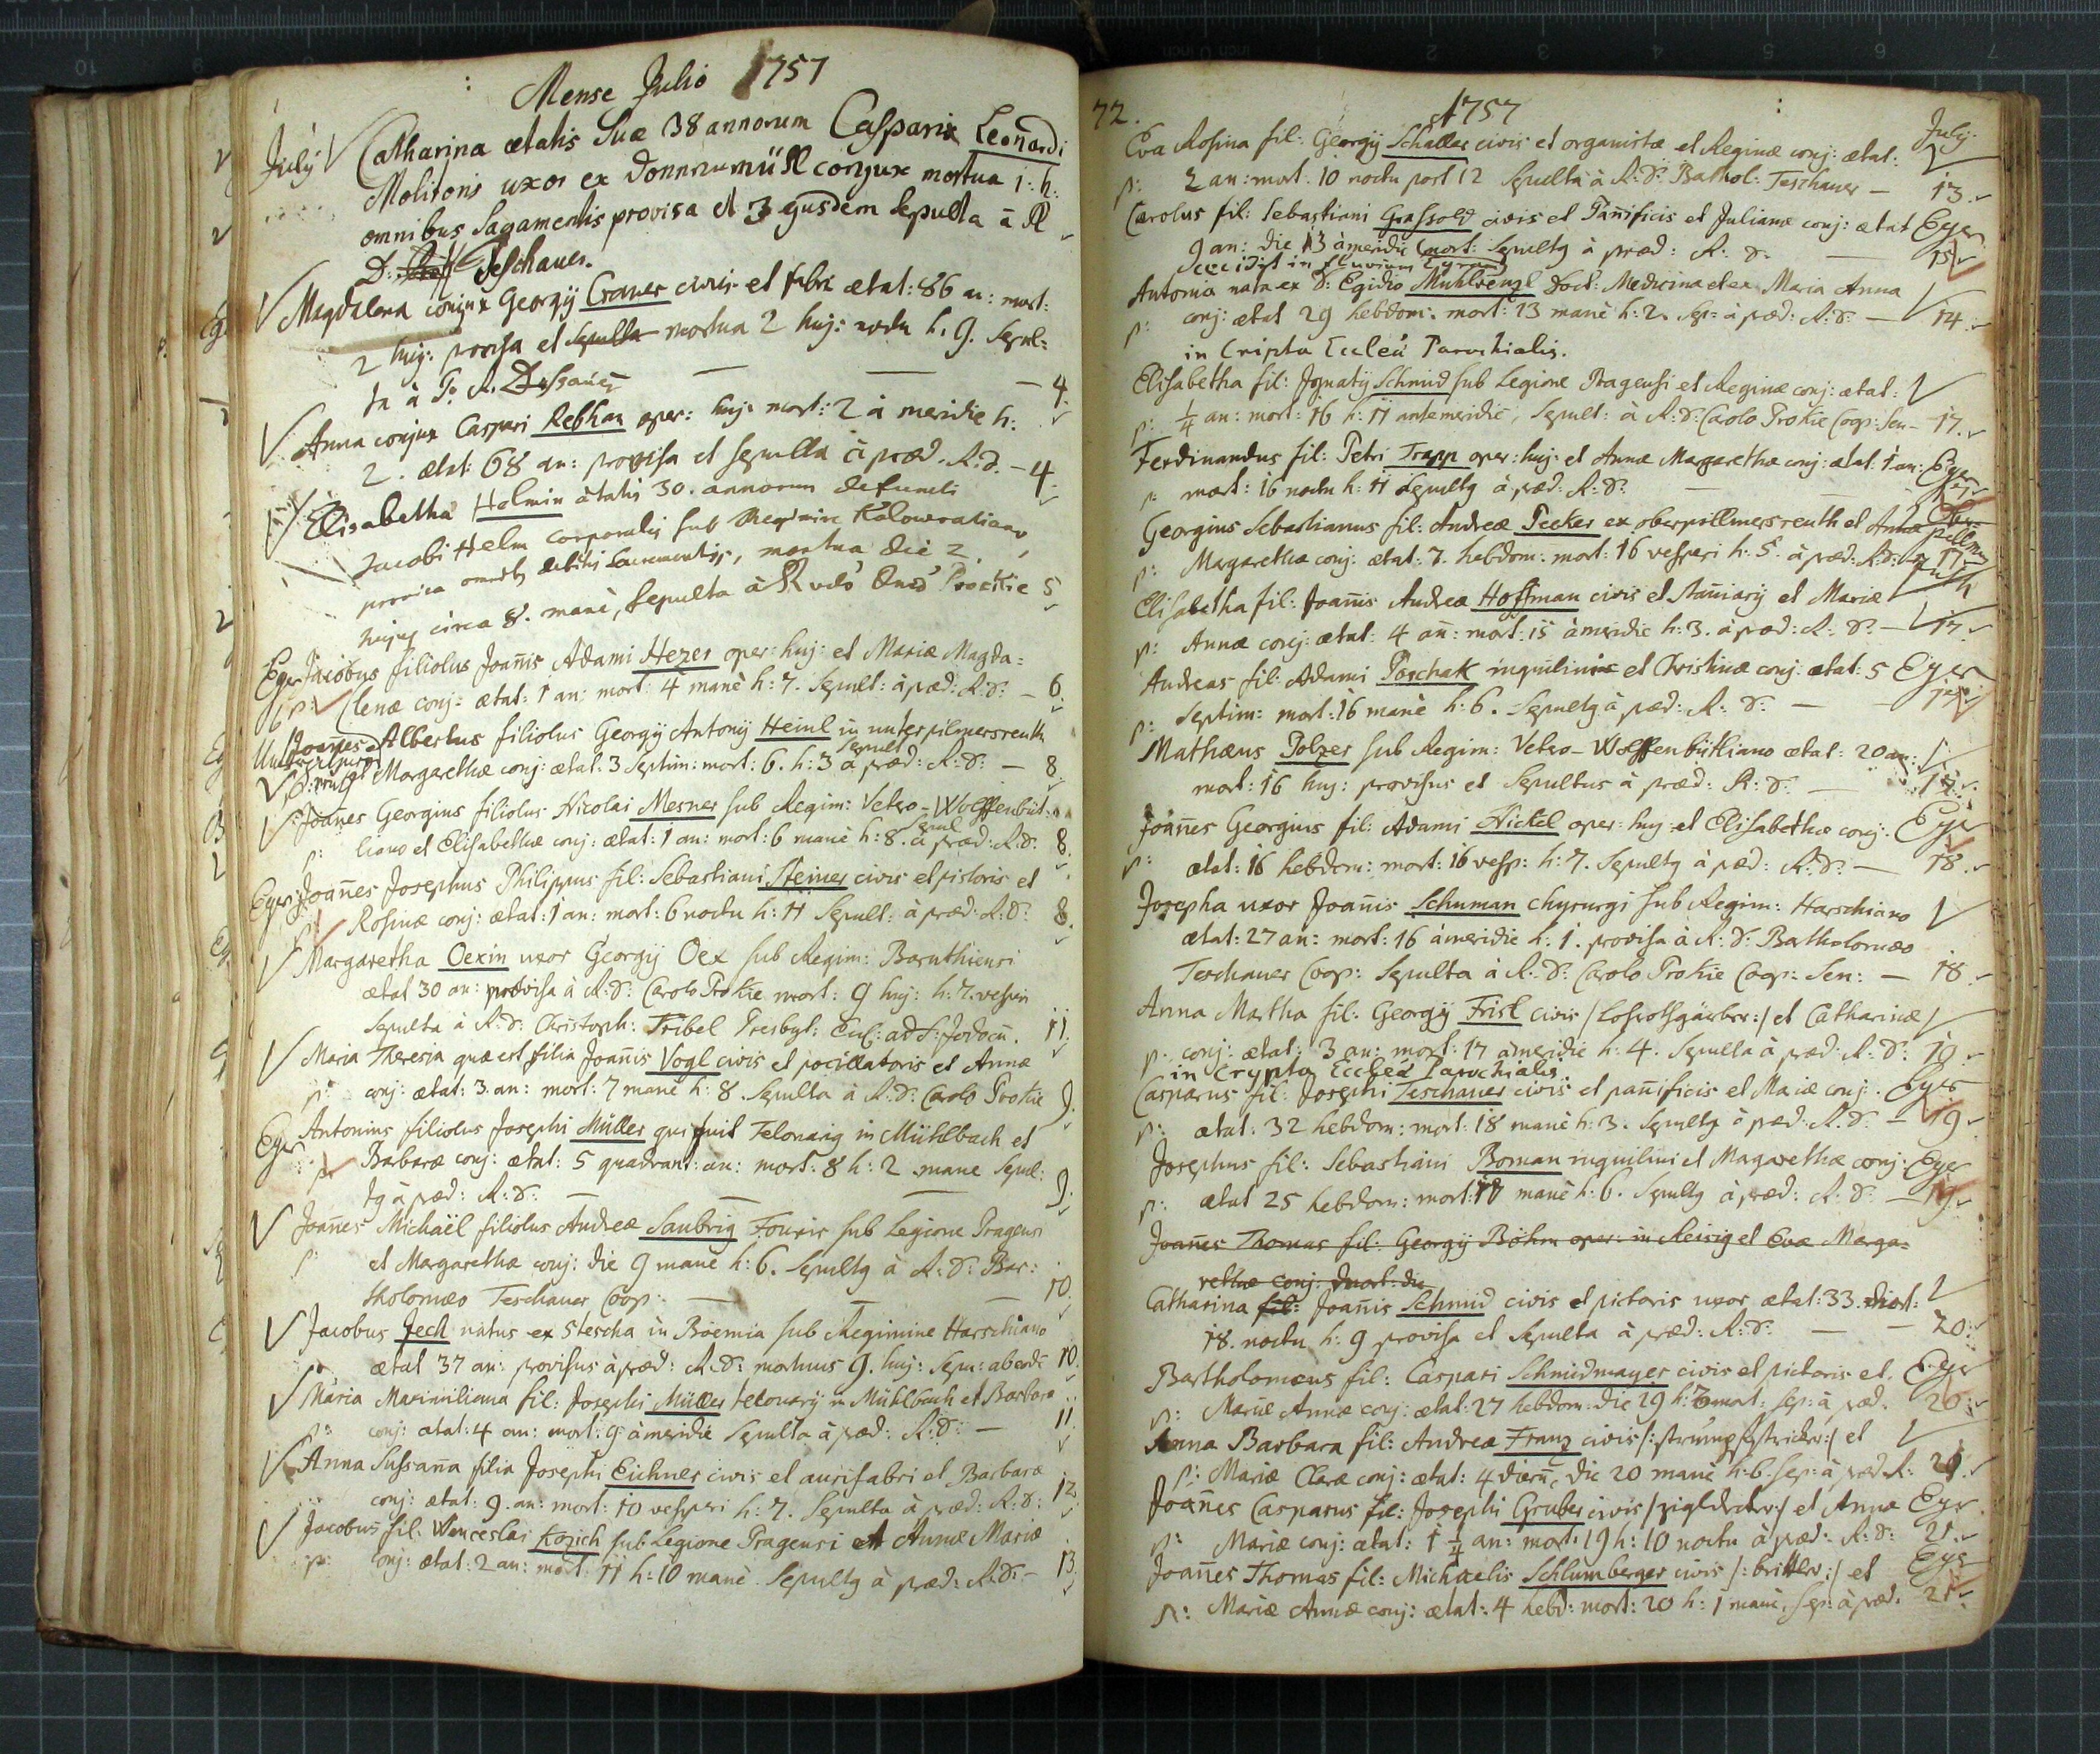 Mense Julio 1757
July Catharina ætatis Suæ 38 annorum Casparix Leonardi
Molitoris uxor ex conjux mortua 1: h:
omnibus Sagamentis provisa et 3 ejusdem sepulta â R
D: Teschauer.
Magdalena conjux Georgÿ Croner civis et fabri ætat: 86 an: mort:
2 huj: provisa et sepulta mortua 2 huj: noctu h. 9. sepul=
ta à P. R. — — — 4.
Anna conjux Caspari Rebhan oper: huj: mort: 2 à meridie h:
2. ætat: 68 an: provisa et sepulta à præd. R. d. – 4.
Elisabetha Helmin ætatis 30. annorum defuncti
Jacobi Helm corporalis sub Regimine Kolowratiano,
provisa omnibus debitis Sacramentis, mortua die 2
hujus circa 8. manè, sepulta à Rvdo Dno Prockie 5
Eger Jacobus filiolus Joañis Adami Hezer oper: huj: et Mariæ Magda=
6 p: lenæ conj: ætat: 1 an: mort: 4 manè h: 7. Sepult: à præd: R: d: – 6.
Joañes Albertus filiolus Georgÿ Antonÿ Heinl in unterpilmersreuth
et Margarethæ conj: ætat: 3 Septim: mort: 6. h: 3 sepult à præd: R: d: — 8
Joañes Georgius filiolus Nicolai Mesner sub Regim: Vetro-Wolffenbüt:
p: liano et Elisabethæ conj: ætat: 1 an: mort: 6 manè h: 8. sepul à præd: R: d: 8.
Eger Joañes Josephus Philippus fil: Sebastiani Steiner civis et pistoris et
Rosinæ conj: ætat: 1 an: mort: 6 noctu h: 11 Sepult: à præd: R: d: 8.
Margaretha Oexin uxor Georgÿ Oex sub Regim: Baruthiensi
ætat 30 an: provisa à R: d: Carolo Prokie mort: 9 huj: h: 7. vesperi
Sepulta à R: d: Christoph: Tribel Presbyt: Cur: ad S: Jodocũ. 11.
Maria Theresia quæ est filia Joañis Vogl civis et pocillatoris et Annæ
p: conj: ætat: 3. an: mort: 7 manè h: 8. Sepulta à R: d: Carolo Prokie 9.
Eger Antonius filiolus Josephi Müller qui fuit Telonarÿ in Mühlbach et
p: Barbaræ conj: ætat: 5 quadrant: an: mort: 8 h: 2 mane Sepul:
tg à præd: R: d: — — — 9.
Joañes Michaël filiolus Andreæ Saubrig Fourir sub Legione Pragensi
p: et Margarethæ conj: die 9 manè h: 6. Sepultg à R: d: Bar:
tholomæo Teschauer Coop: — — — 10.
Jacobus Jech natus ex Stescha in Boemia sub Regimine Harschiano
ætat 37 an: provisus à præd: R: d: mortuus 9. huj: Sepu: ab eodē 10.
Maria Maximiliana fil: Josephi Müller telonarÿ in Mühlbach et Barbaræ
p: conj: ætat: 4 an: mort: 9 à meridie Sepulta à præd: R: d: — 11.
Anna Sussaña filia Josephi Eichner civis et aurifabri et Barbaræ
conj: ætat: 9. an: mort: 10 vesperi h: 7. Sepulta à præd: R: d: 12.
Jacobus fil: Wenceslai Kozich sub Legione Pragensi et Annæ Mariæ
p: conj: ætat: 2 an: mort: 11 h: 10 manè. Sepultg à præd: R: d: – 13.
72. 1757 July
Eva Rosina fil: Georgÿ Schaller civis et organistæ et Reginæ conj: ætat:
p: 2 an: mort. 10 noctu post 12 Sepulta à R: d: Barthol: Teschauer — 13.
Carolus fil: Sebastiani Grassold civis et Pañificis et Julianæ conj: ætat Eger
9 an: die 13 à meridie mort: Sepultg à præd: R: d. — 15
occidit in fluvium Egram
Antonia nata ex D: Egidio Muhlvenzl Doct: Medicinæ et ex Maria Anna
p: conj: ætat 29 hebdom: mort: 13 manè h: 2. Sep: à præd: R: d: — 14.
in Cripta Eccleæ Parochialis.
Elisabetha fil: Ignatÿ Schmid sub Legione Pragensi et Reginæ conj: ætat:
p: 1/4 an: mort: 16 h: 11 antemeridie, Sepult: à R: d: Carolo Prokie Coop: Sen – 17.
Ferdinandus fil: Petri Trapp oper: huj: et Annæ Margarethæ conj: ætat: 1 an: Eger
p: mort: 16 noctu h: 11 Sepultg à præd: R: d: — — 17
Georgius Sebastianus fil: Andreæ Pecker ex oberpillmersreuth et Annæ
p: Margarethæ conj: ætat: 7. hebdom: mort: 16 vesperi h: 5. à præd: R: d: 17.
Elisabetha fil: Joañis Andreæ Hoffman civis et Stañiarÿ et Mariæ
p: Annæ conj: ætat: 4 añ: mort: 15 à meridie h: 3. à præd: R: d: — 17.
Andreas fil: Adami Poschak inquilini et Christinæ conj: ætat: 5 Eger
p: Septim: mort: 16 manè h: 6. Sepultg à præd: R: d: — 17
Mathæus Polzer sub Regim: Vetro-Wolffenbüttiano ætat: 20 an:
mort: 16 huj: provisus et Sepultus à præd: R: d: — 17.
Joañes Georgius fil: Adami Nickel oper: huj: et Elisabethæ conj. Eger
p: ætat: 16 hebdom: mort: 16 vesp: h: 7. Sepultg à præd: R: d: — 18.
Josepha uxor Joañis Schuman Chyrurgi sub Regim: Harschiano
ætat: 27 an: mort: 16 à meridie h: 1. provisa à R: d: Bartholomæo
Teschauer Coop: Sepulta à R: d: Carolo Prokie Coop: Sen: — 18.
Anna Martha fil: Georgÿ Frisl civis et Catharinæ
p: conj: ætat: 3 an: mort: 17 à meridie h: 4. Sepulta à præd: R: d: 19.
in Crypta Eccleæ Parochialis.
Casparus fil: Josephi Teschauer civis et pañificis et Mariæ conj: Eger
p: ætat: 32 hebdom: mort: 18 manè h: 3. Sepultg à præd: R: d: – 19.
Josephus fil: Sebastiani Boman inquilini et Magarethæ conj: Eger
p: ætat 25 hebdom: mort: 17 manè h: 6. Sepultg à præd: R: d: – 19.
Joañes Thomas fil: Georgÿ Böhm oper: in Reisig et Evæ Marga=
rethæ conj: mort: die
Catharina fil: Joañis Schmid civis et pictoris uxor ætat: 33. mort:
18. noctu h: 9 provisa et Sepulta à præd: R: d: — — 20.
Bartholomæus fil: Caspari Schmidmayer civis et pictoris et Eger
p: Mariæ Annæ conj: ætat: 27 hebdom: die 19 h: 7 mort: sep: à præd. 20.
Anna Barbara fil: Andreæ Franz civis /: strümpfstricker :/ et
p: Mariæ Claræ conj: ætat: 4 dierũ, die 20 manè h: 6. sep: à præd. R: 21.
Joañes Casparus fil: Josephi Gruber civis /zigldecker:/ et Annæ Eger
p: Mariæ conj: ætat: 1 1/4 an: mort: 19 h: 10 noctu à præd: R: d: 21.
Joañes Thomas fil: Michaelis Schlumberger civis et Eger
p: Mariæ Annæ conj: ætat: 4 hebd: mort: 20 h: 1 manè, sep: à præd. 21.